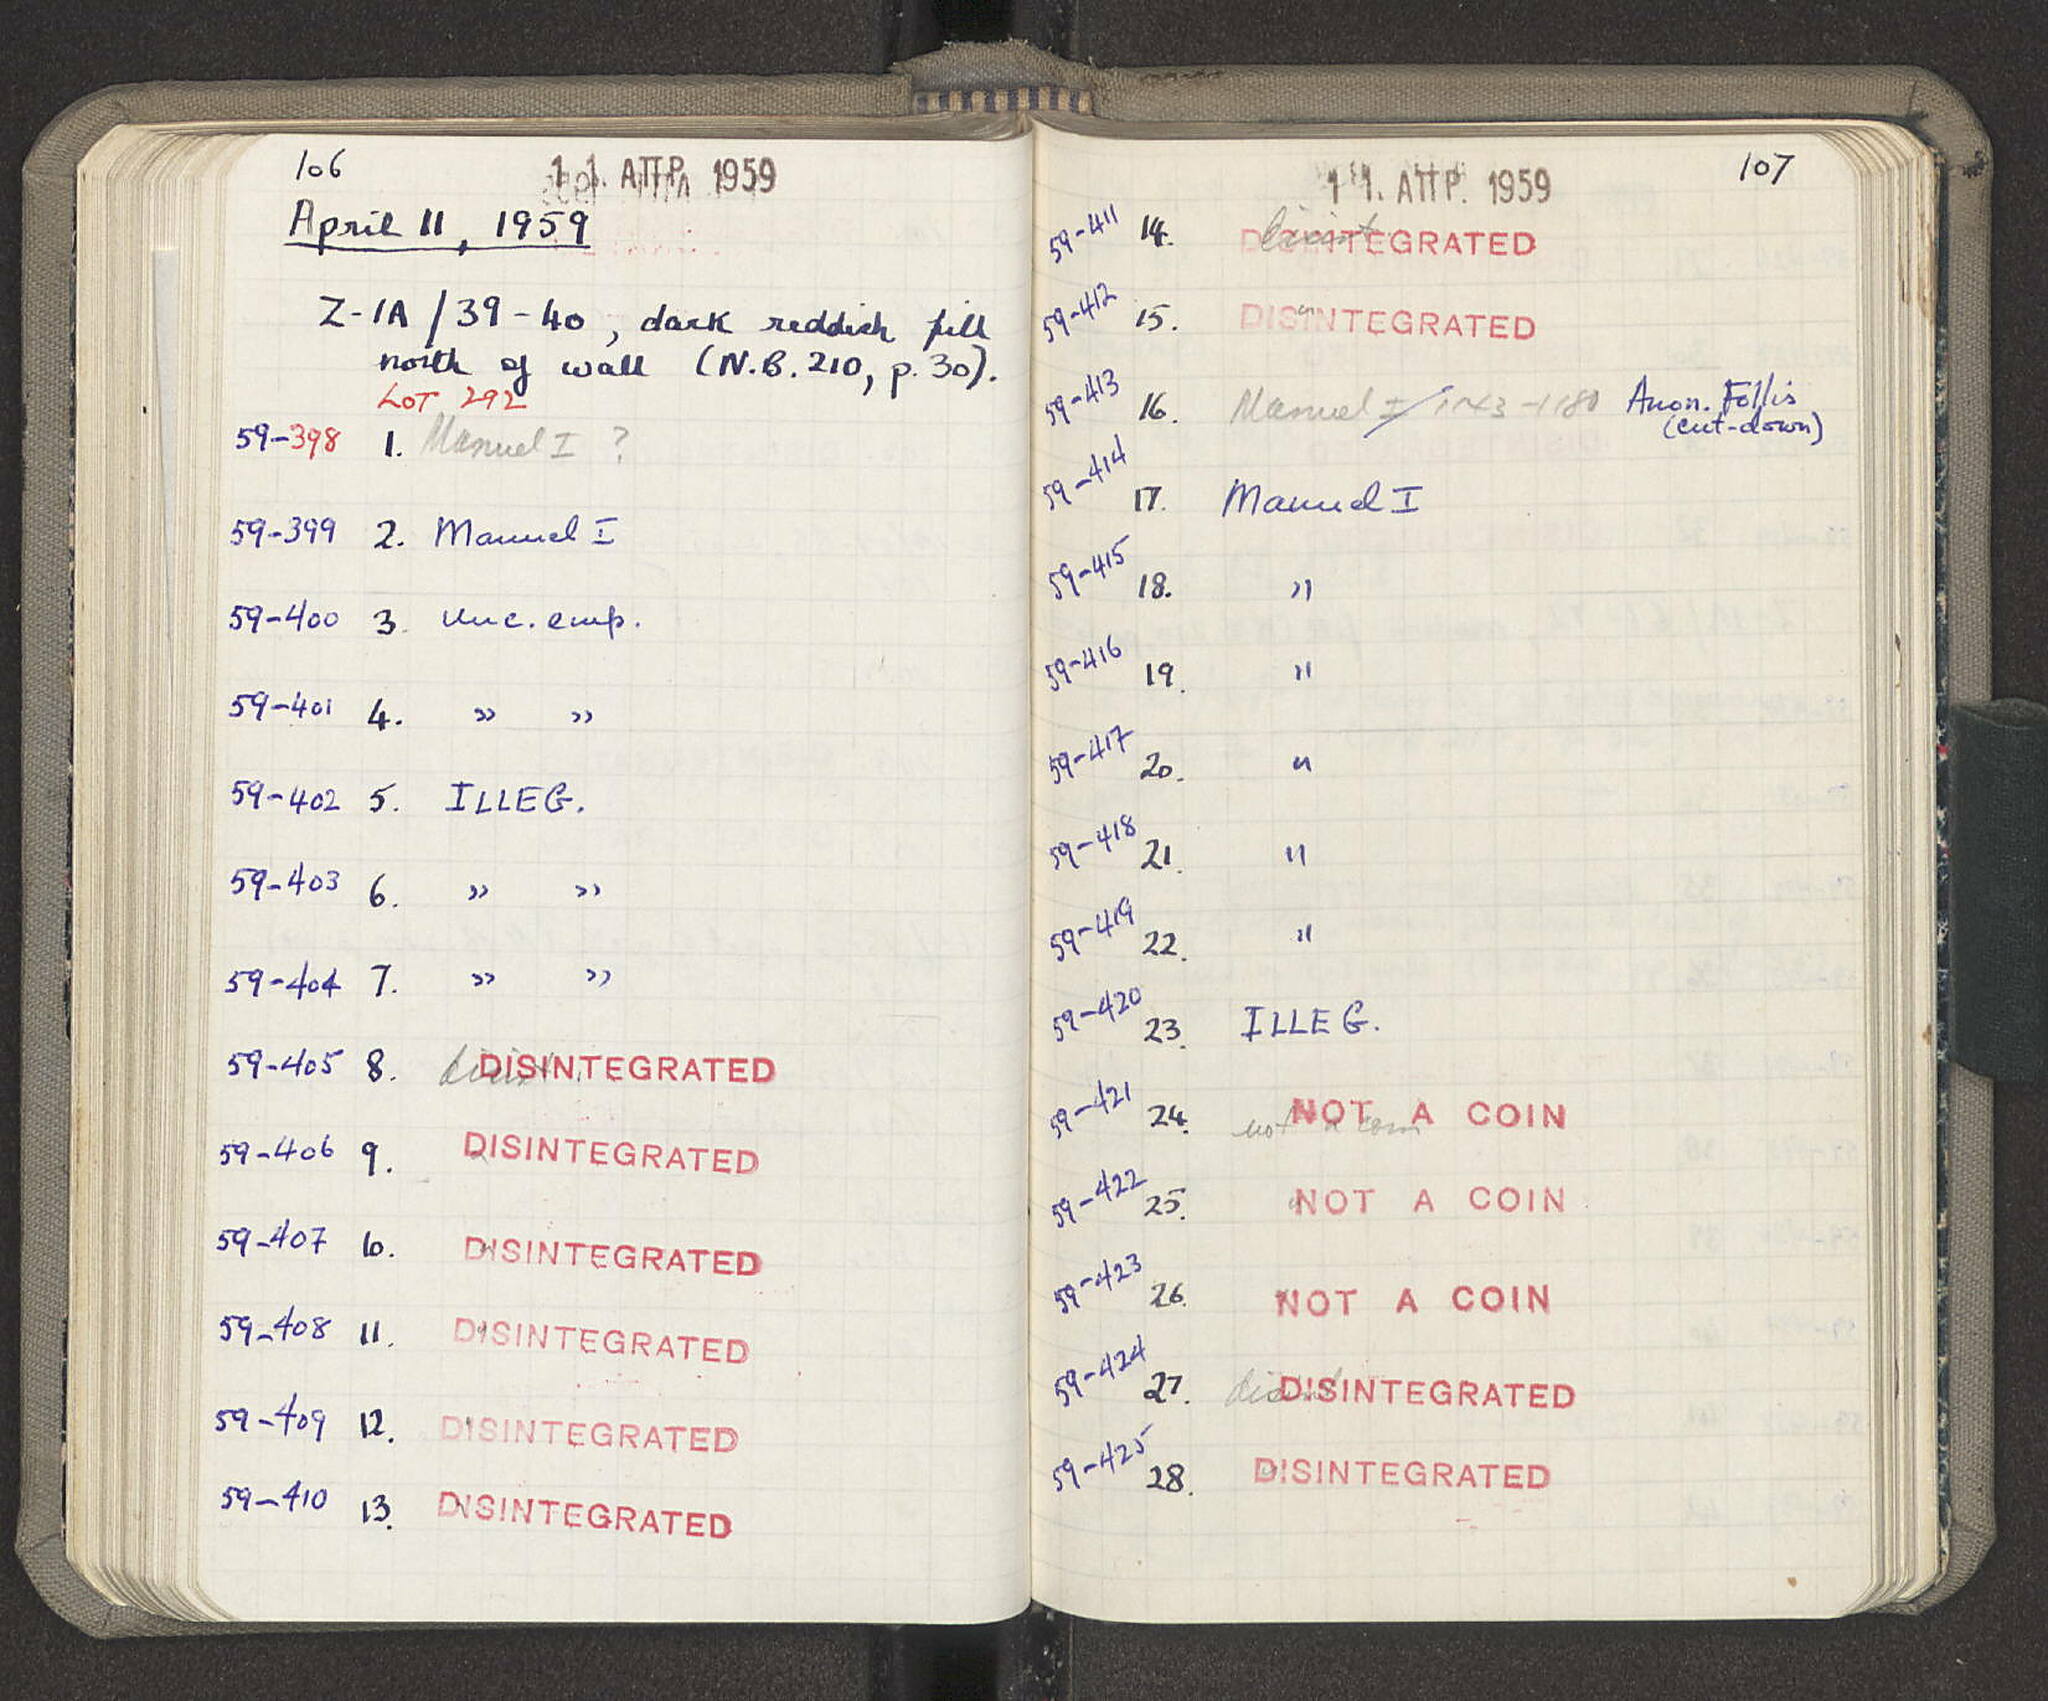 106
11. ΑΠΡ. 1959
April 11, 1959
Z-1A/39-40, dark reddish fill
north of wall (N.B. 210, p. 30).
LOT 292
59-398 1. Manuel I ?
59-399 2. Manuel I
59-400 3. Unc. emp.
59-401 4. " "
59-402 5. ILLEG.
59-403 6. " "
59-404 7. " "
59-405 8. DISINTEGRATED
59-406 9. DISINTEGRATED
59-407 10. DISINTEGRATED
59-408 11. DISINTEGRATED
59-409 12. DISINTEGRATED
59-410 13. DISINTEGRATED
107
11. ΑΠΡ. 1959
59-411 14. DISINTEGRATED
59-412 15. DISINTEGRATED
59-413 16. Manuel I 1143-1180 Anon. Follis
(cut-down)
59-414 17. Manuel I
59-415 18. "
59-416 19. "
59-417 20. "
59-418 21. "
59-419 22. "
59-420 23. ILLEG.
59-421 24. not a coin NOT A COIN
59-422 25. " NOT A COIN
59-423 26. " NOT A COIN
59-424 27. DISINTEGRATED
59-425 28. DISINTEGRATED